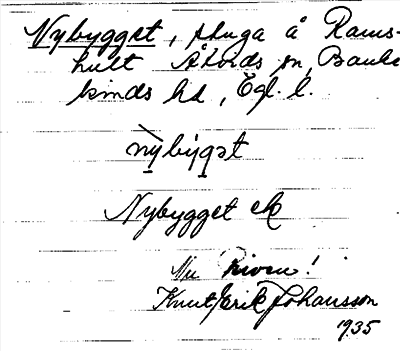 Nybygget, stuga å Rams-
hult Åtvids sn, Banke
kinds hd, Ögl. l.
nỳbýgət
Nybygget ek
Nu riven!
Knut Erik Johansson
1935